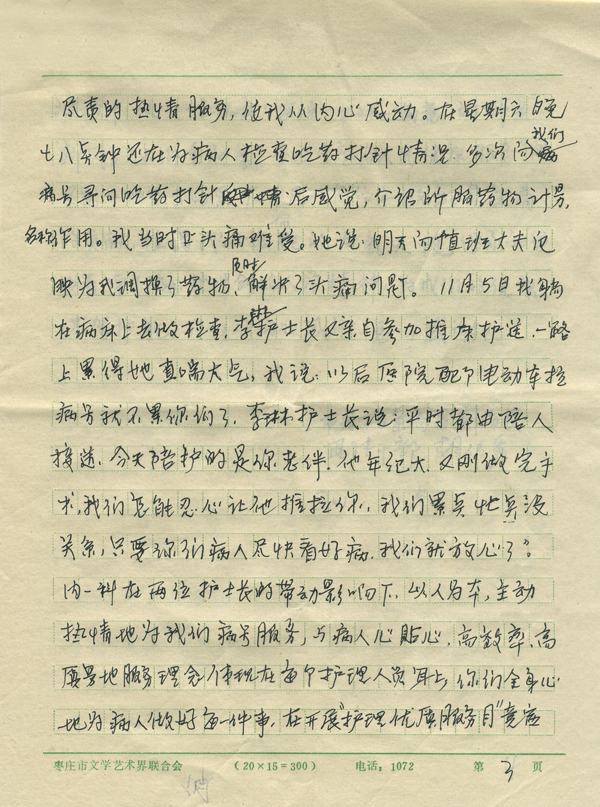 尽责的热情服务，使我从内心感动。在星期六的晚
七八点钟还在为病人检查吃药打针情况。多次问我们病
病号寻问吃药打针后感觉，介绍所服药物计量，
名称作用。我当时正头痛难受。她说：明天向值班大夫反
映为我调换了药物，及时解决了头痛问题。11月5日我躺
在病床上去做检查，李琳护士长又亲自参加推床护送，一路
上累得她直喘大气，我说：以后医院配了电动车拉
病号就不累你们了，李琳护士长说：平时都由陪人
接送，今天陪护的是你老伴，他年纪大，又刚做完手
术，我们怎能忍心让他推拉你，我们累点忙点没
关系，只要你们病人尽快看好病，我们就放心了”。
内一科在两位护士长的带动影响下，以人为本，主动
热情地为我们病号服务，与病人心贴心，高效率、高
质量地服务理念体现在每个护理人员身上，你们全身心
地为病人做好每一件事，在开展“护理优质服务月”竞赛
枣庄市文学艺术界联合会 （20×15=300） 电话：1072 第 3 页